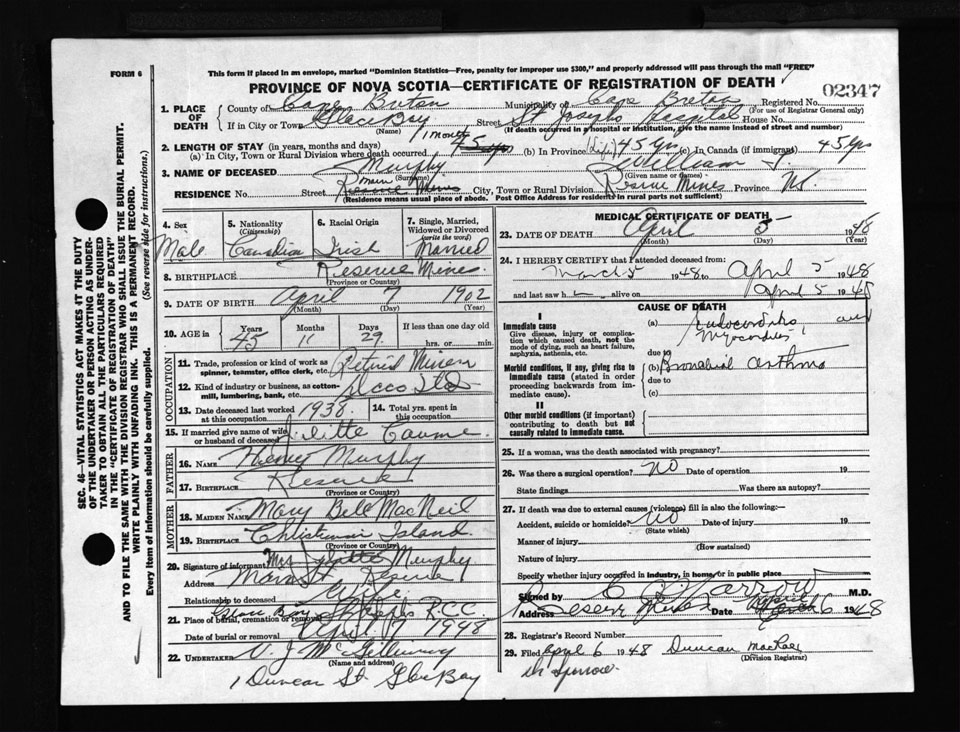 FORM 6
This form if placed in an envelope, marked "Dominion Statistics—Free, penalty for improper use $300," and properly addressed will pass through the mail "FREE"
PROVINCE OF NOVA SCOTIA—CERTIFICATE OF REGISTRATION OF DEATH
02347
1. PLACE OF DEATH
County of Cape Breton Municipality of Cape Breton Registered No.
(For use of Registrar General only)
If in City or Town Glace Bay Street St Josephs Hospital House No.
(Name) (If death occurred in a hospital or institution, give the name instead of street and number)
2. LENGTH OF STAY (in years, months and days)
(a) In City, Town or Rural Division where death occurred 1 month (b) In Province (Life) 45 yrs (c) In Canada (if immigrant) 45 yrs
3. NAME OF DECEASED Murphy William J.
(Surname) (Given name or names)
RESIDENCE No. Street Main Reserve Mines City, Town or Rural Division Reserve Mines Province NS.
(Residence means usual place of abode. Post Office Address for residents in rural parts not sufficient)
4. Sex Male
5. Nationality (Citizenship) Canadian
6. Racial Origin Irish
7. Single, Married, Widowed or Divorced (write the word) Married
8. BIRTHPLACE Reserve Mines
(Province or Country)
9. DATE OF BIRTH April 7 1902
(Month) (Day) (Year)
10. AGE in Years Months Days If less than one day old
45 11 29 hrs. or min.
OCCUPATION
11. Trade, profession or kind of work as spinner, teamster, office clerk, etc. Retired Miner
12. Kind of industry or business, as cotton-mill, lumbering, bank, etc.
13. Date deceased last worked at this occupation 1938.
14. Total yrs. spent in this occupation
15. If married give name of wife or husband of deceased
FATHER
16. NAME Henry Murphy
17. BIRTHPLACE Reserve
(Province or Country)
MOTHER
18. MAIDEN NAME Mary Bell MacNeil
19. BIRTHPLACE Christmas Island
(Province or Country)
20. Signature of informant Mrs Murphy
Address Main St Reserve
Relationship to deceased Wife.
21. Place of burial, cremation or removal Glace Bay R.C.C.
Date of burial or removal April 7 1948
22. UNDERTAKER V. J. McGillivray
(Name and address)
1 Duncan St. Glace Bay
MEDICAL CERTIFICATE OF DEATH
23. DATE OF DEATH April 5 1948
(Month) (Day) (Year)
24. I HEREBY CERTIFY that I attended deceased from:
March 5 1948 to April 5 1948
and last saw h alive on April 5 1948
CAUSE OF DEATH
I
Immediate cause
Give disease, injury or complication which caused death, not the mode of dying, such as heart failure, asphyxia, asthenia, etc.
(a) Endocarditis and Myocarditis
due to
Morbid conditions, if any, giving rise to immediate cause (stated in order proceeding backwards from immediate cause).
(b) Bronchial Asthma
due to
(c)
II
Other morbid conditions (if important) contributing to death but not causally related to immediate cause.
25. If a woman, was the death associated with pregnancy?
26. Was there a surgical operation? No Date of operation 19
State findings Was there an autopsy?
27. If death was due to external causes (violence) fill in also the following:—
Accident, suicide or homicide? No Date of injury 19
(State which)
Manner of injury
(How sustained)
Nature of injury
Specify whether injury occurred in industry, in home, or in public place
Signed by M.D.
Address Reserve Mines Date April 6 1948
28. Registrar's Record Number
29. Filed April 6 1948 Duncan MacRae
(Division Registrar)
SEC. 46—VITAL STATISTICS ACT MAKES IT THE DUTY
OF THE UNDERTAKER OR PERSON ACTING AS UNDER-
TAKER TO OBTAIN ALL THE PARTICULARS REQUIRED
IN THE "CERTIFICATE OF REGISTRATION OF DEATH"
AND TO FILE THE SAME WITH THE DIVISION REGISTRAR WHO SHALL ISSUE THE BURIAL PERMIT.
WRITE PLAINLY WITH UNFADING INK. THIS IS A PERMANENT RECORD.
Every item of information should be carefully supplied. (See reverse side for instructions.)